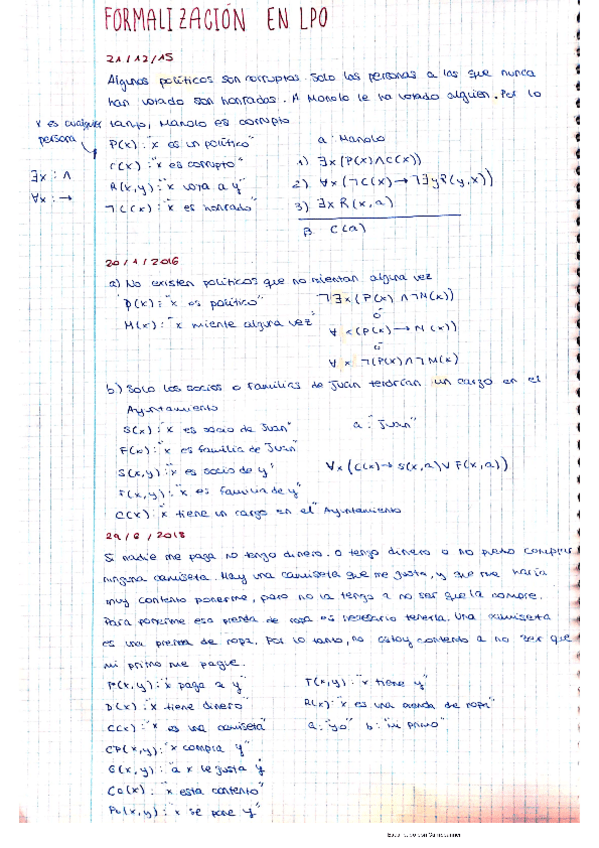 FORMALIZACIÓN EN LPO
21/12/15
Algunos políticos son corruptos. Solo las personas a las que nunca
han votado son honradas. A Manolo le ha votado alguien. Por lo
x es cualquier tanto, Manolo es corrupto
persona
P(x): "x es un político" a: Manolo
C(x): "x es corrupto" 1) ∃x(P(x)∧C(x))
∃x : ∧ R(x,y): "x vota a y" 2) ∀x(¬C(x)→¬∃yR(y,x))
∀x : → ¬C(x): "x es honrado" 3) ∃xR(x,a)
C(a)
20/1/2016
a) No existen políticos que no mientan alguna vez
P(x): "x es político" ¬∃x(P(x)∧¬M(x))
ó
M(x): "x miente alguna vez" ∀x(P(x)→M(x))
ó
∀x¬(P(x)∧¬M(x)
b) Solo los socios o familias de Juan tendrían un cargo en el
Ayuntamiento
S(x): "x es socio de Juan" a: "Juan"
F(x): "x es familia de Juan"
S(x,y): "x es socio de y" ∀x(C(x)→S(x,a)∨F(x,a))
F(x,y): "x es familia de y"
C(x): "x tiene un cargo en el Ayuntamiento
Si nadie me paga no tengo dinero. O tengo dinero o no puedo comprar
ninguna camiseta. Hay una camiseta que me gusta, y que me haría
muy contento ponerme, pero no la tengo a no ser que la compre.
Para ponerme esa prenda de ropa es necesario tenerla. Una camiseta
es una prenda de ropa. Por lo tanto, no estoy contento a no ser que
mi primo me pague.
P(x,y): "x paga a y" T(x,y): "x tiene y"
D(x): "x tiene dinero" R(x): "x es una prenda de ropa"
C(x): "x es una camiseta" a: "yo" b: "mi primo"
CP(x,y): "x compra y"
G(x,y): "a x le gusta y
Co(x): "x está contento"
Po(x,y): "x se pone y"